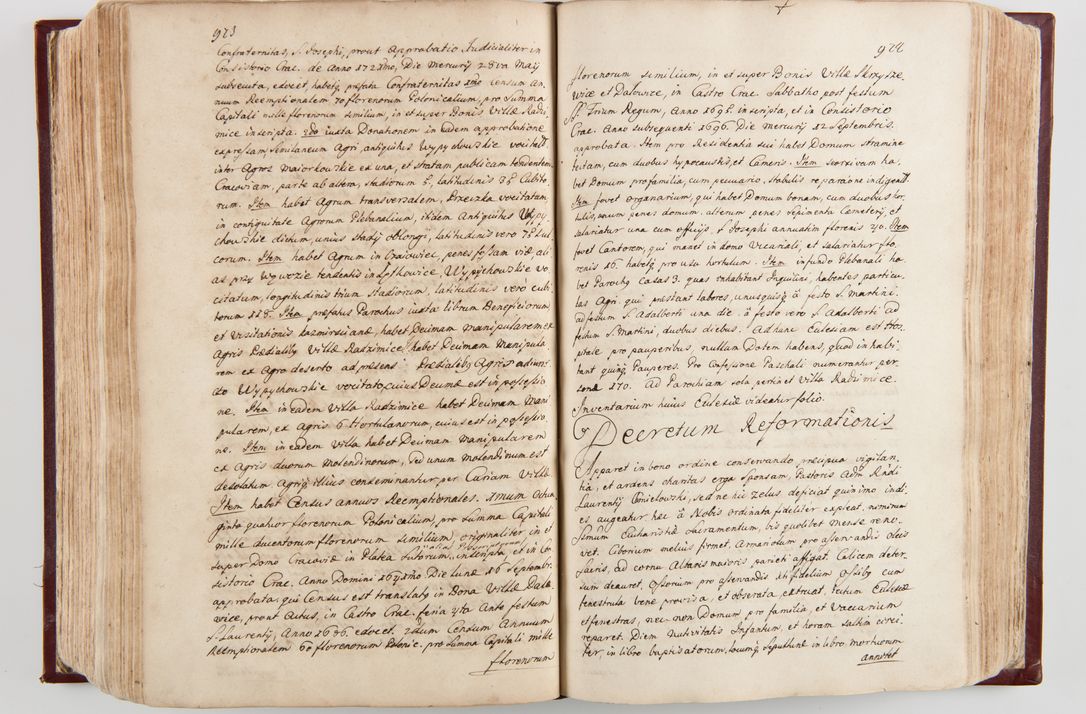 923
Confraternitas, S. Josephi, prout approbatio Iudicialiter in
Consistorio Crac. de Anno 172 Die Mercurij 28va Maij
subsecuta, edocet, habetq, prefata Confraternitas 1mo Censum An-
nuum Reemptionalem 70 florenorum Polonicalium, pro Summa
Capitali mille florenorum similium, in et super Bonis Villæ Radzi-
mice inscripta. 2do iuxta Donationem in eadem approbatione
expressam, Semilaneum Agri, antiquitus Wypychowskie vocitatt.
inter Agros Maiorkowskie ex una, et stratam publicam tendentem
Cracoviam, parte ab altera, stadiorum latitudinis Cubito-
rum. Item habet Agrum transversalem, Przeczka vocitatum,
in contiguitate Agrorum Plebanalium, itidem Antiquitus Wypy-
chowskie dictum, unius stadij oblongi, latitudinis vero Cu-
corum. Item habet Agrum in Craiowiec, penes fossam viæ, ali-
as przy Wywozie tendentis in Łythowice, Wypychowskie vo-
citatum, longitudinis trium Stadiorum, latitudinis vero cubi-
torum 118. Item præfatus Parochus iuxta librum Beneficiorum
et Visitationis kazmirscianæ, habet Decimam manipularem ex
Agris Prædialibq Villæ Radzimice, habet Decimam Manipula-
rem ex Agro deserto ad præsens Prædialibq Agris adiunc-
to Wypychowskie vocitato, cuius Decimæ est in possessio-
ne. Item in eadem Villa Radzimice habet Decimam Mani-
pularem, ex Agris 6 Hortulanorum, cuius est in possessio-
ne. Item in eadem Villa habet Decimam Manipularem
ex Agris duorum Molendinorum, sed unum Molendinum est
desolatum Agriq illius condeminantur per Curiam Villæ.
Item habet Census annuos Reemptionales. 1mum Octua-
ginta quatuor florenorum Polonicalium, pro Summa Capitali
mille ducentorum florenorum similium, originaliter in et
super Domo Cracoviæ in Platea Sutorum, inscripta, et in Con-
sistorio Crac. Anno Domini Die Lunæ 16 Septembr.
approbata, qui Census est translatq in Bona Villæ Dalo-
wice, prout Actus, in Castro Crac. feria 4ta Ante festum
S. Laurentij, Anno 1696. edocet. 2dum Censum Annuum
Reemptionalem 60 florenorum Polonic. pro Summa Capitali mille
florenorum
florenorum similium, in et super Bonis Villæ Skrzysze-
wice et Dalowice, in Castro Crac. Sabbatho post festum
SS. Trium Regum, Anno 1695. inscripta, et in Consistorio
Crac. Anno subsequenti 1696. Die Mercurij 12 Septembris.
approbata. Item pro Residentia sui habet Domum stramine
tectam, cum duobus hypocaustis, et Cameris. Item seorsivam ha-
bet Domum pro familia, cum pecuario, stabulis reparatione indigentt.
Item fovet organarium, qui habet Domum bonam, cum duobus hor-
tulis, unum penes domum, alterum penes sepimenta Cæmeterij, et
salariatur una cum officijs, S. Josephi annuatim florenis 240. Item
fovet Cantorem, qui manet in domo Vicariali, et salariatur flo-
renis 16. habetq pro usu hortulum. Item in fundo Plebanali ha-
bet Parochq Casas 3. quas inhabitant Inquilini, habentes particu-
las Agri. qui præstant labores, unusquisq à festo S. Martini.
ad festum S. Adalberti una die. à festo vero S. Adalberti ad
festum S. Martini, duobus diebus. Ad hanc Ecclesiam est Hos-
pitale pro pauperibus, nullam Dotem habens, quod inhabi-
tant quinq Pauperes. Pro Confessione Paschali numerantur per-
sonæ 170. Ad Parochiam sola pertinet Villa Radzimice.
Inventarium huius Ecclesiæ videatur folio.
Decretum Reformationis
Apparet in bono ordine conservando præcipua vigilan-
tia, et ardens charitas erga Sponsam, Pastoris Adm Rndi
Laurentij Conielowski, sed ne hic zelus deficiat quin imo indi-
es augeatur hæc à Nobis ordinata fideliter expleat. nominum
Smum Eucharistiæ Sacramentum, bis quolibet mense reno-
vet. Ciborium melius firmet. Armariolum pro asservandis oleis
sacris, ad cornu Altaris maioris parieti affigat. Calicem deter-
sum deauret, Ossorium pro asservandis Xti fidelium ossibq cum
fenestrula bene provisa, et obserata, extruat, tectum Ecclesiæ
et fenestras, nec non Domum pro familia, et Vaccarium
reparet. Diem Nativitatis Infantum, et horam saltim circi-
ter, in libro baptisatorum, locumq Sepulturæ in libro mortuorum
annotet